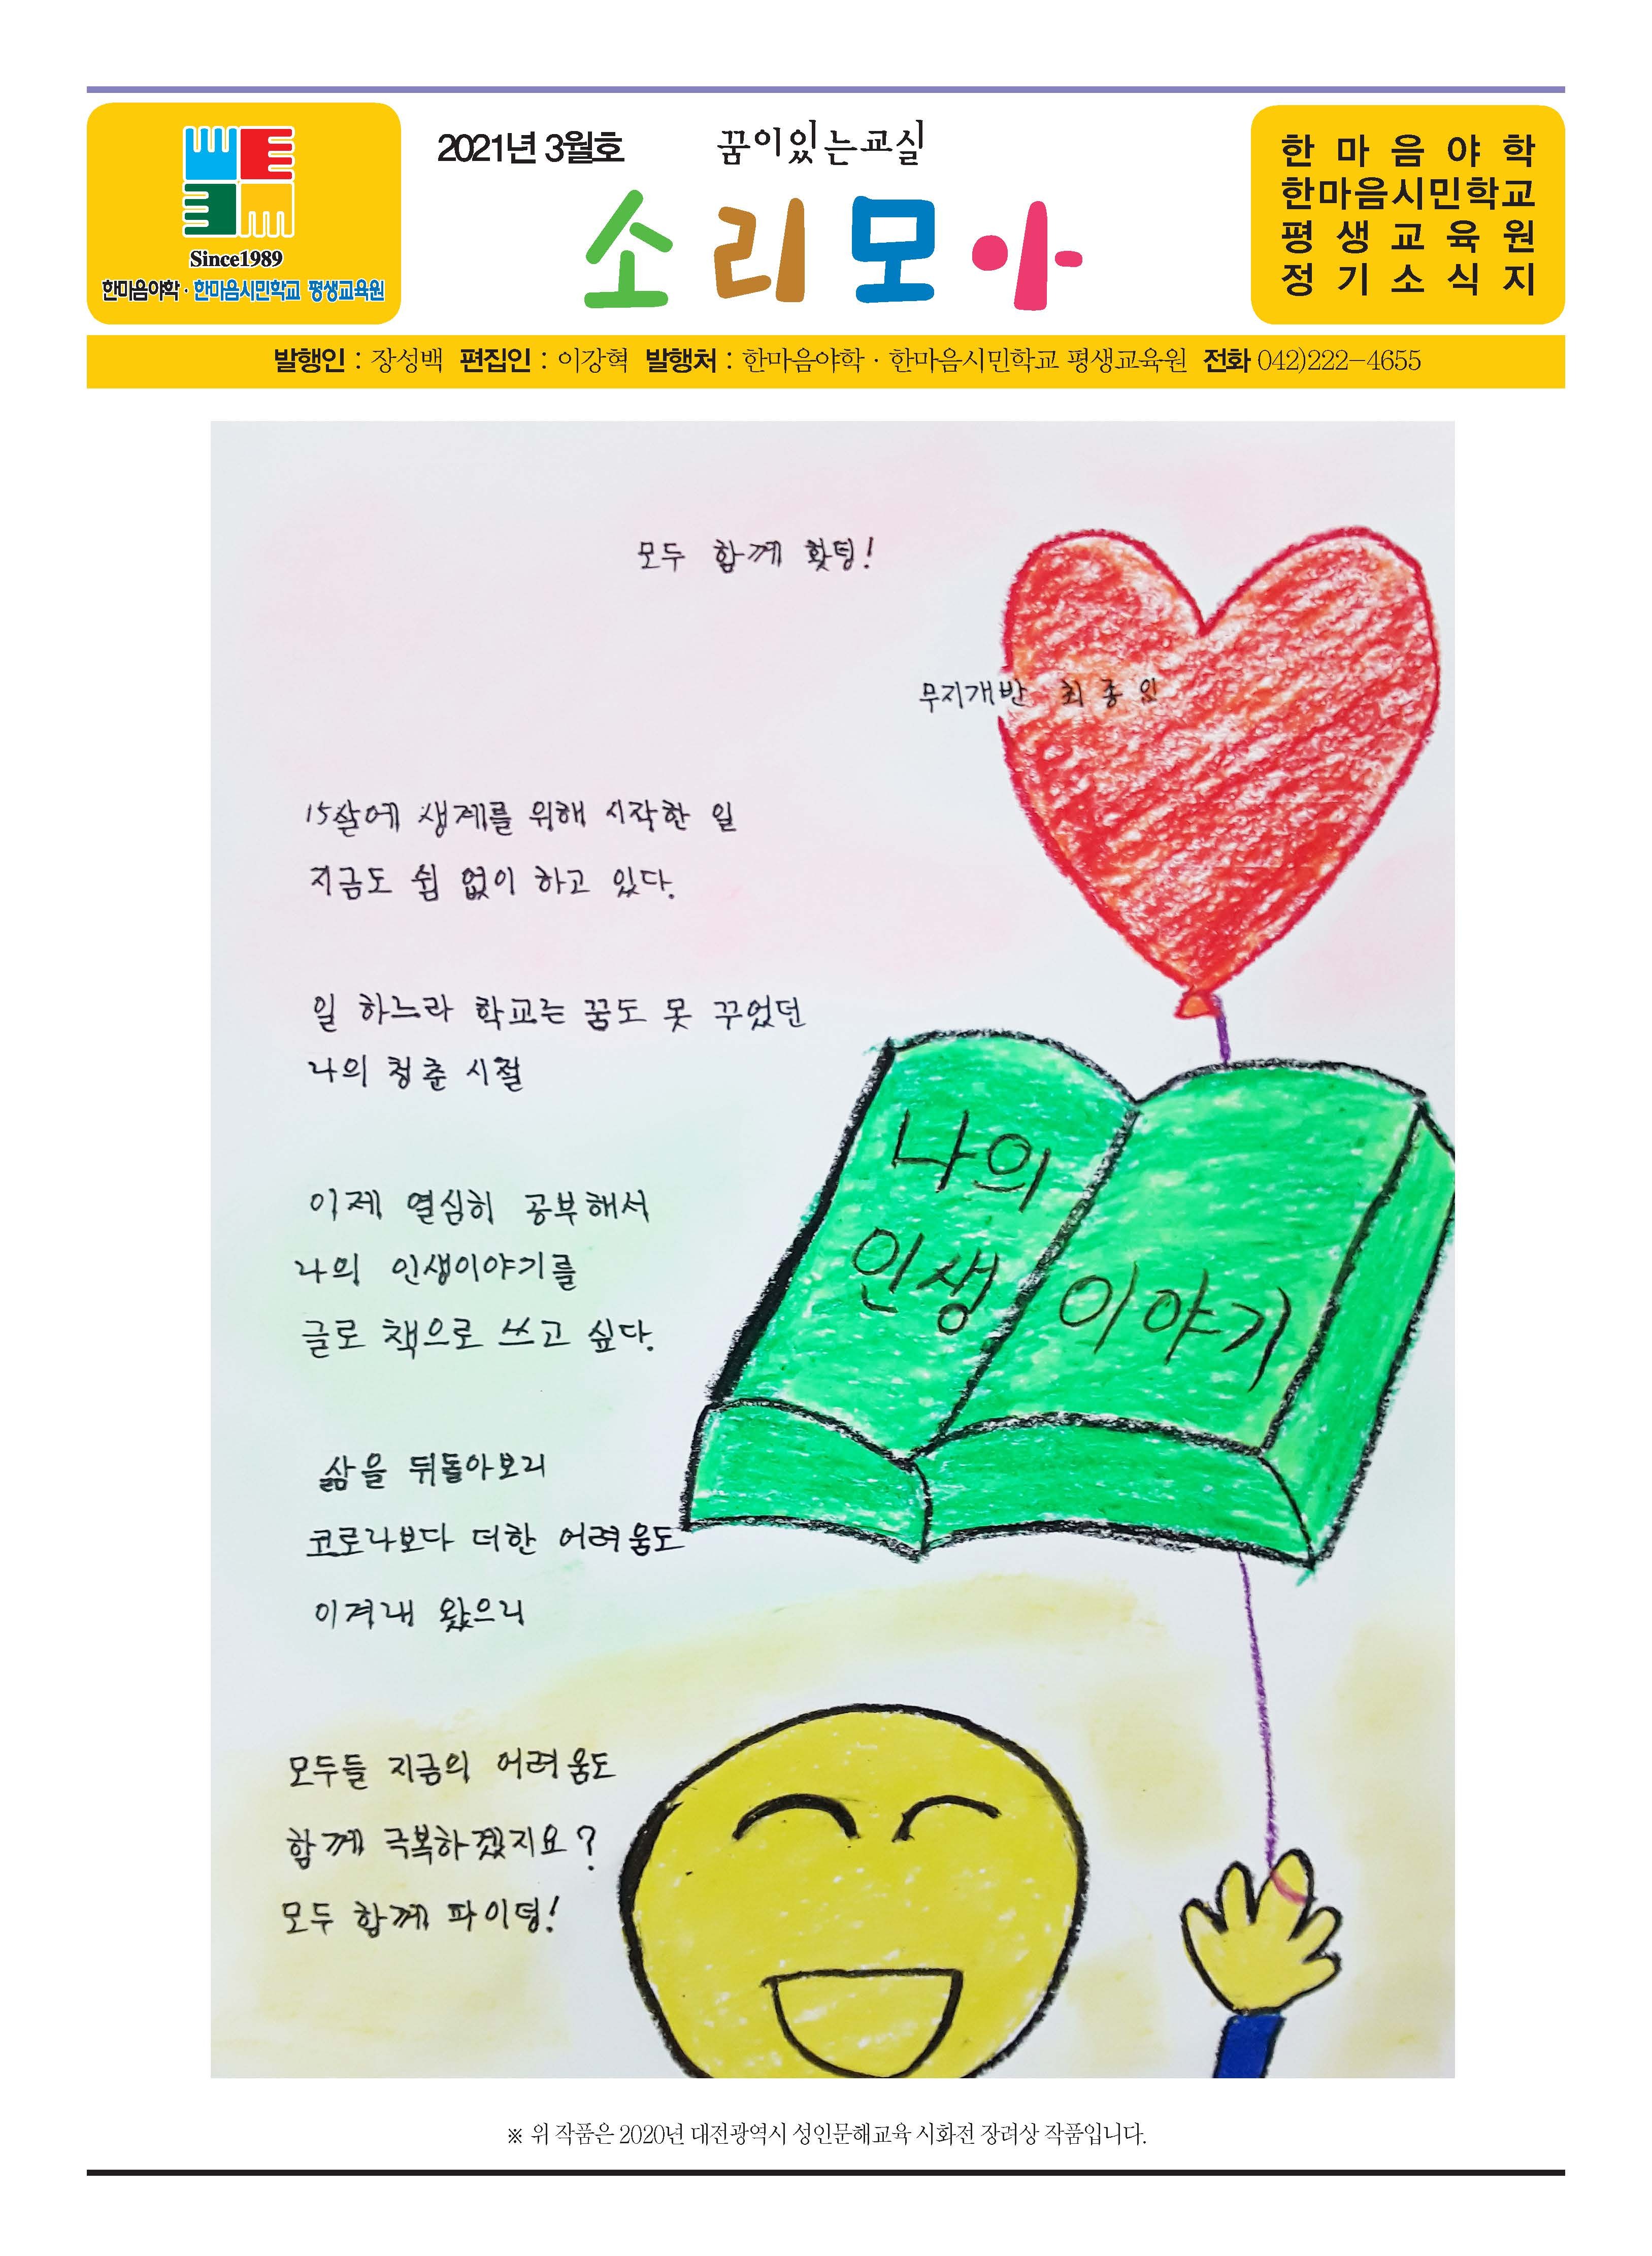 Since1989
한마음야학 · 한마음시민학교 평생교육원
2021년 3월호
꿈이있는교실
소리모아
한마음야학
한마음시민학교
평생교육원
정기소식지
발행인 : 장성백 편집인 : 이강혁 발행처 : 한마음야학 · 한마음시민학교 평생교육원 전화 042)222-4655
모두 함께 홧팅!
무지개반 최종인
15살에 생계를 위해 시작한 일
지금도 쉼 없이 하고 있다.
일 하느라 학교는 꿈도 못 꾸었던
나의 청춘 시절
이제 열심히 공부해서
나의 인생이야기를
글로 책으로 쓰고 싶다.
삶을 뒤돌아보니
코로나보다 더한 어려움도
이겨내 왔으니
모두들 지금의 어려움도
함께 극복하겠지요?
모두 함께 파이팅!
나의
인생 이야기
※ 위 작품은 2020년 대전광역시 성인문해교육 시화전 장려상 작품입니다.